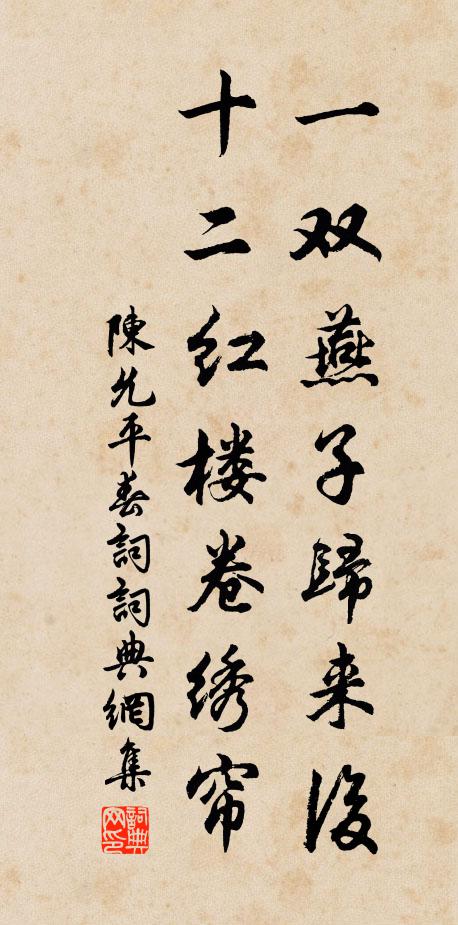 一双燕子歸来後
十二红楼卷绣帘
陳允平春詞詞典網集
詞典网印